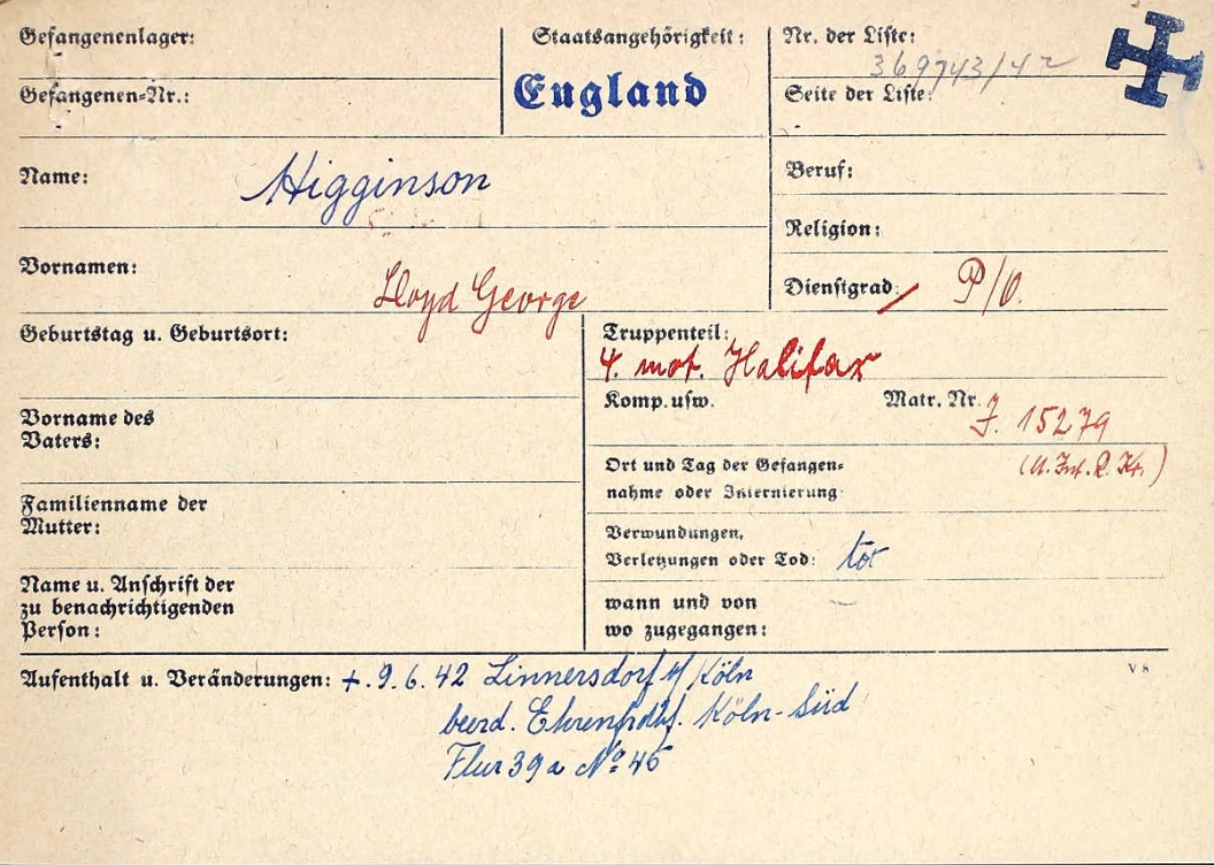 Gefangenenlager:
Gefangenen-Nr.:
Staatsangehörigkeit:
England
Nr. der Liste:
369743/42
Seite der Liste:
Name: Higginson
Vornamen: Lloyd George
Beruf:
Religion:
Dienstgrad: P/O.
Geburtstag u. Geburtsort:
Vorname des
Vaters:
Familienname der
Mutter:
Name u. Anschrift der
zu benachrichtigenden
Person:
Truppenteil:
4. mot. Halifax
Komp. usw. Matr. Nr. J. 15279
Ort und Tag der Gefangen-
nahme oder Internierung:
Verwundungen,
Verletzungen oder Tod: tot
wann und von
wo zugegangen:
V 8
Aufenthalt u. Veränderungen: +. 9. 6. 42 Linnersdorf b/Köln
beerd. Ehrenfrdhf. Köln-Süd
Flur 39a Nº 45